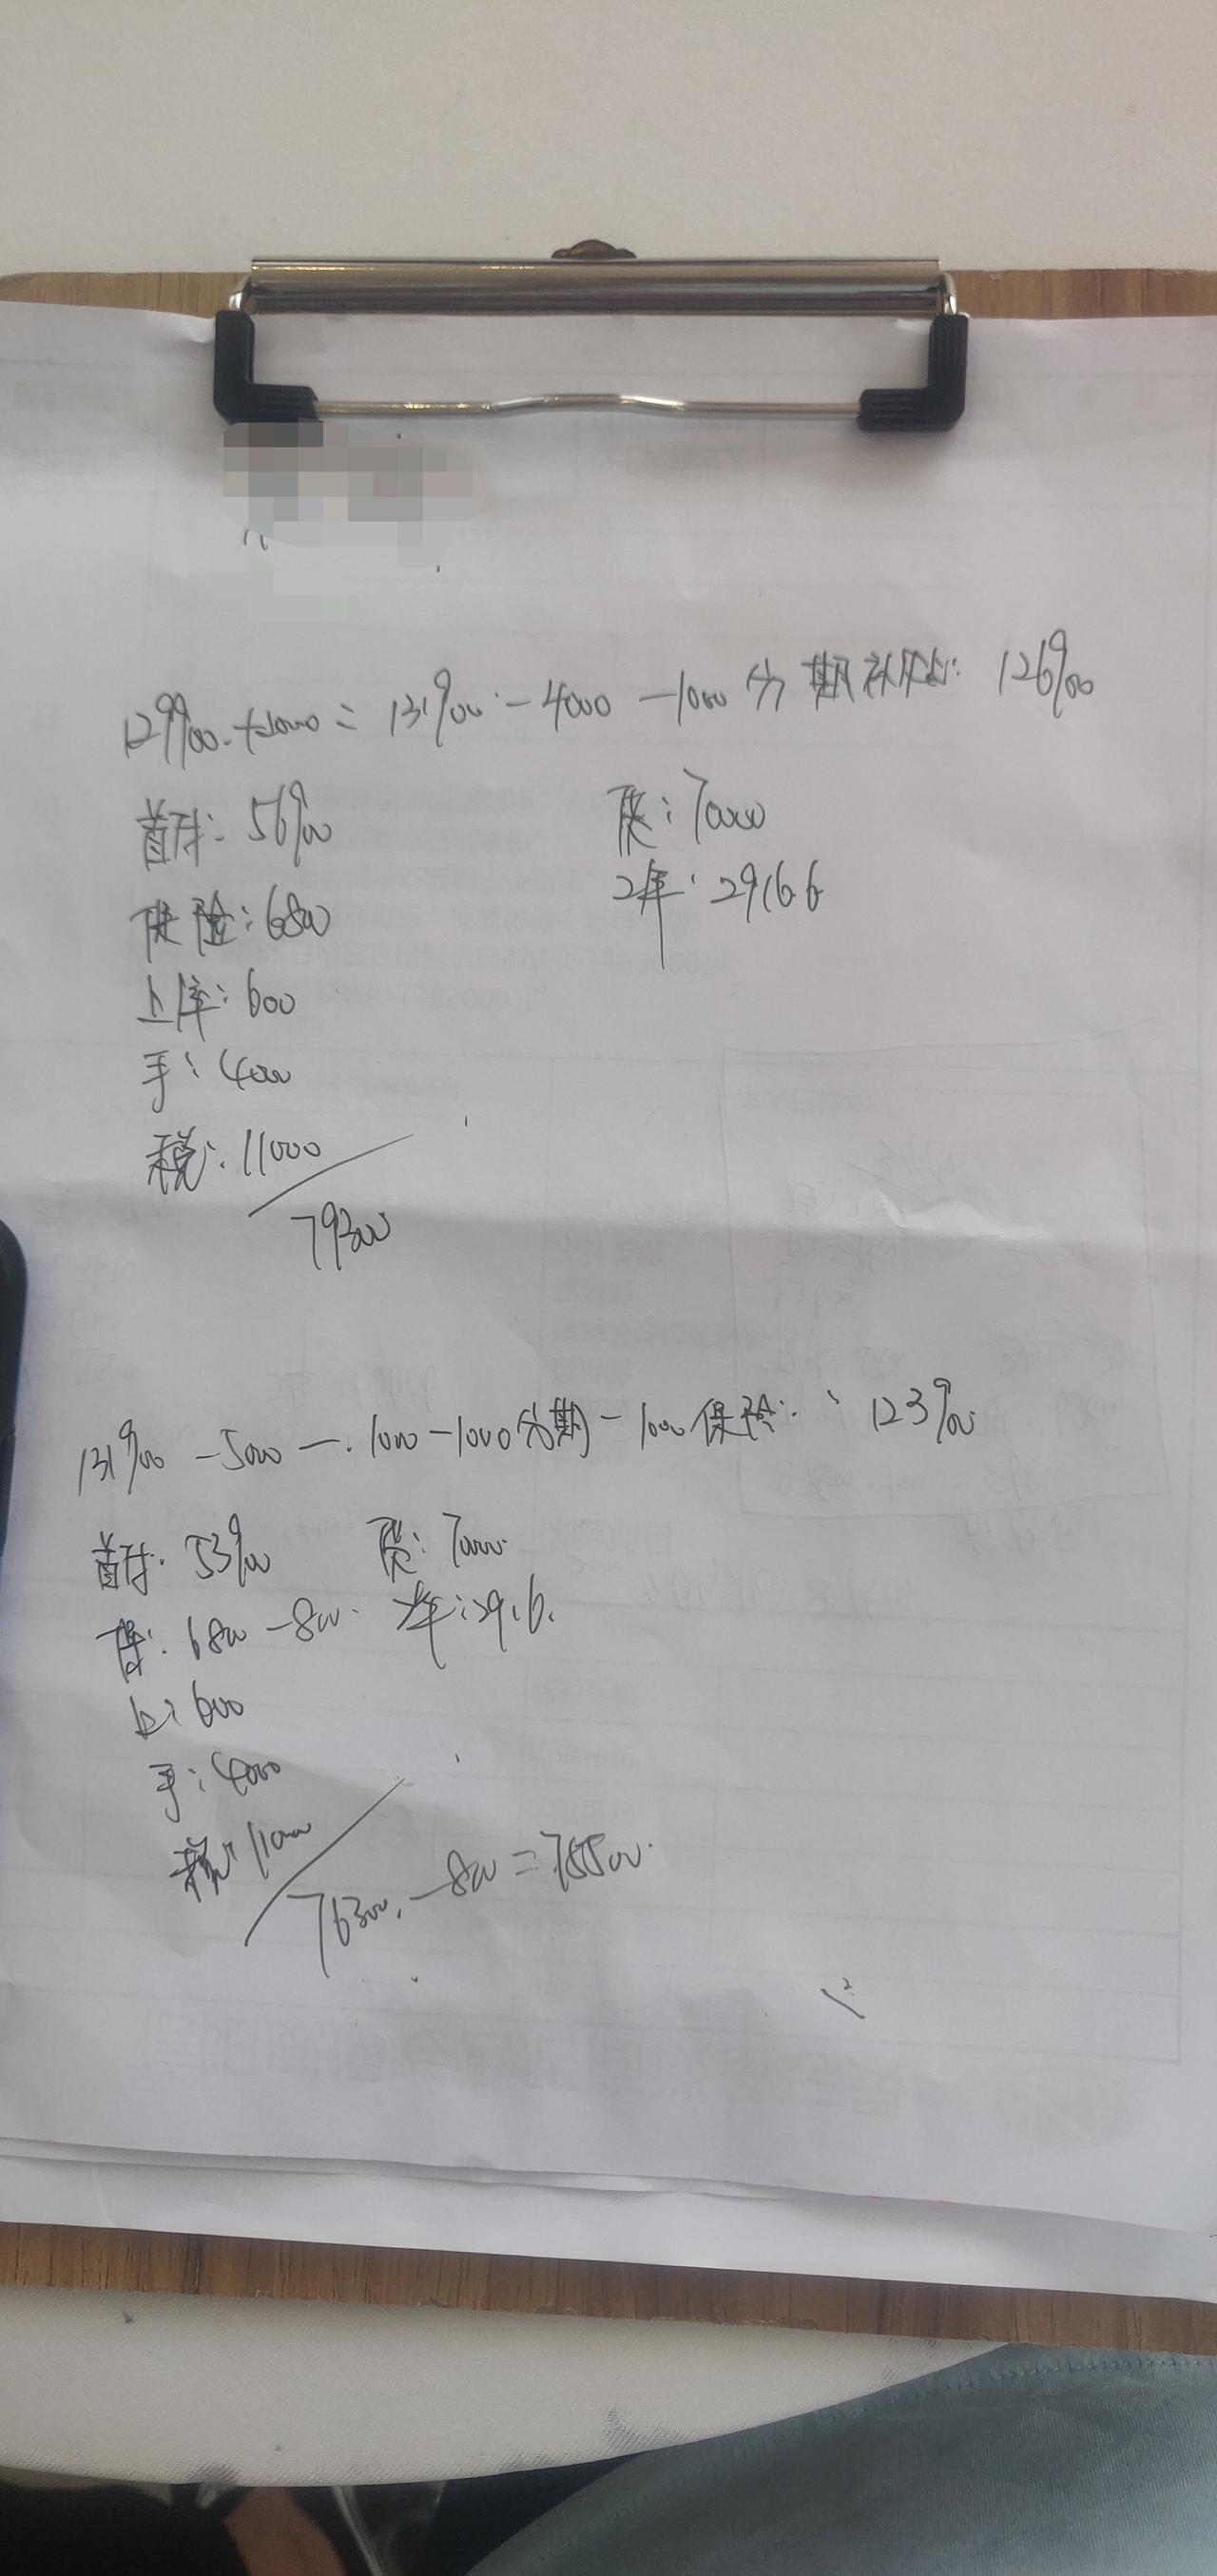 129900+2000=131900-4000-1000分期补贴: 126900
首付: 56900 贷: 70000
保险: 6800 2年: 2916.6
上牌: 600
手: 4000
税: 11000
79300
131900-5000-1000-1000分期-1000保险: 123900
首付: 53900 贷: 70000
保: 6800-800 2年: 2916.
上: 600
手: 4000
税: 11000
76300-800=75500